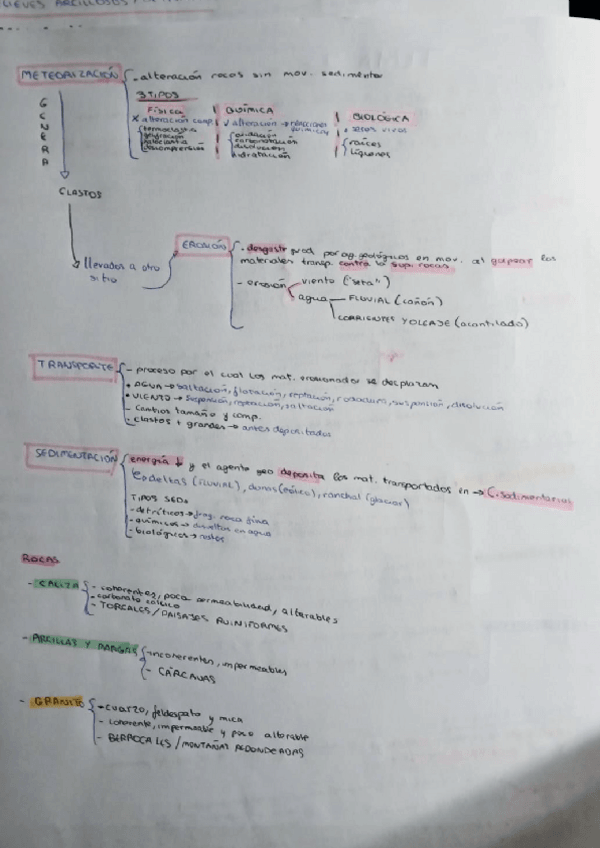 LIEVES ARCILLOSOS
METEORIZACIÓN - alteración rocas sin mov. sedimentos
3 TIPOS
FÍSICA QUÍMICA BIOLÓGICA
x alteración comp. ✓ alteración → reacciones químicas + seres vivos
termoclastia oxidación raíces
gelifracción carbonatación líquenes
haloclastia disolución
descompresión hidratación
GENERA
CLASTOS
EROSIÓN - desgaste prod. por ag. geológicos en mov. al golpear los
materiales transp. contra la sup. rocas.
llevados a otro
sitio
- erosión viento ("seta")
agua FLUVIAL (cañón)
CORRIENTES Y OLEAJE (acantilado)
TRANSPORTE - proceso por el cual los mat. erosionados se desplazan
• AGUA → saltación, flotación, reptación, rodadura, suspensión, disolución
• VIENTO → suspensión, reptación, saltación
- Cambios tamaño y comp.
- clastos + grandes → antes depositados
SEDIMENTACIÓN energía ↓ y el agente geo deposita los mat. transportados en → C. sedimentarias
deltas (fluvial), dunas (eólico), (glaciar)
TIPOS SED.
- detríticos → frag. roca fina
- químicos → disueltos en agua
- biológicos → restos
ROCAS
- CALIZA - coherentes, poca permeabilidad, alterables
- carbonato cálcico
- TORCALES / PAISAJES RUINIFORMES
- ARCILLAS Y MARGAS - incoherentes, impermeables
- CÁRCAVAS
- GRANITO - cuarzo, feldespato y mica
- coherente, impermeable y poco alterable
- BERROCALES / MONTAÑAS REDONDEADAS